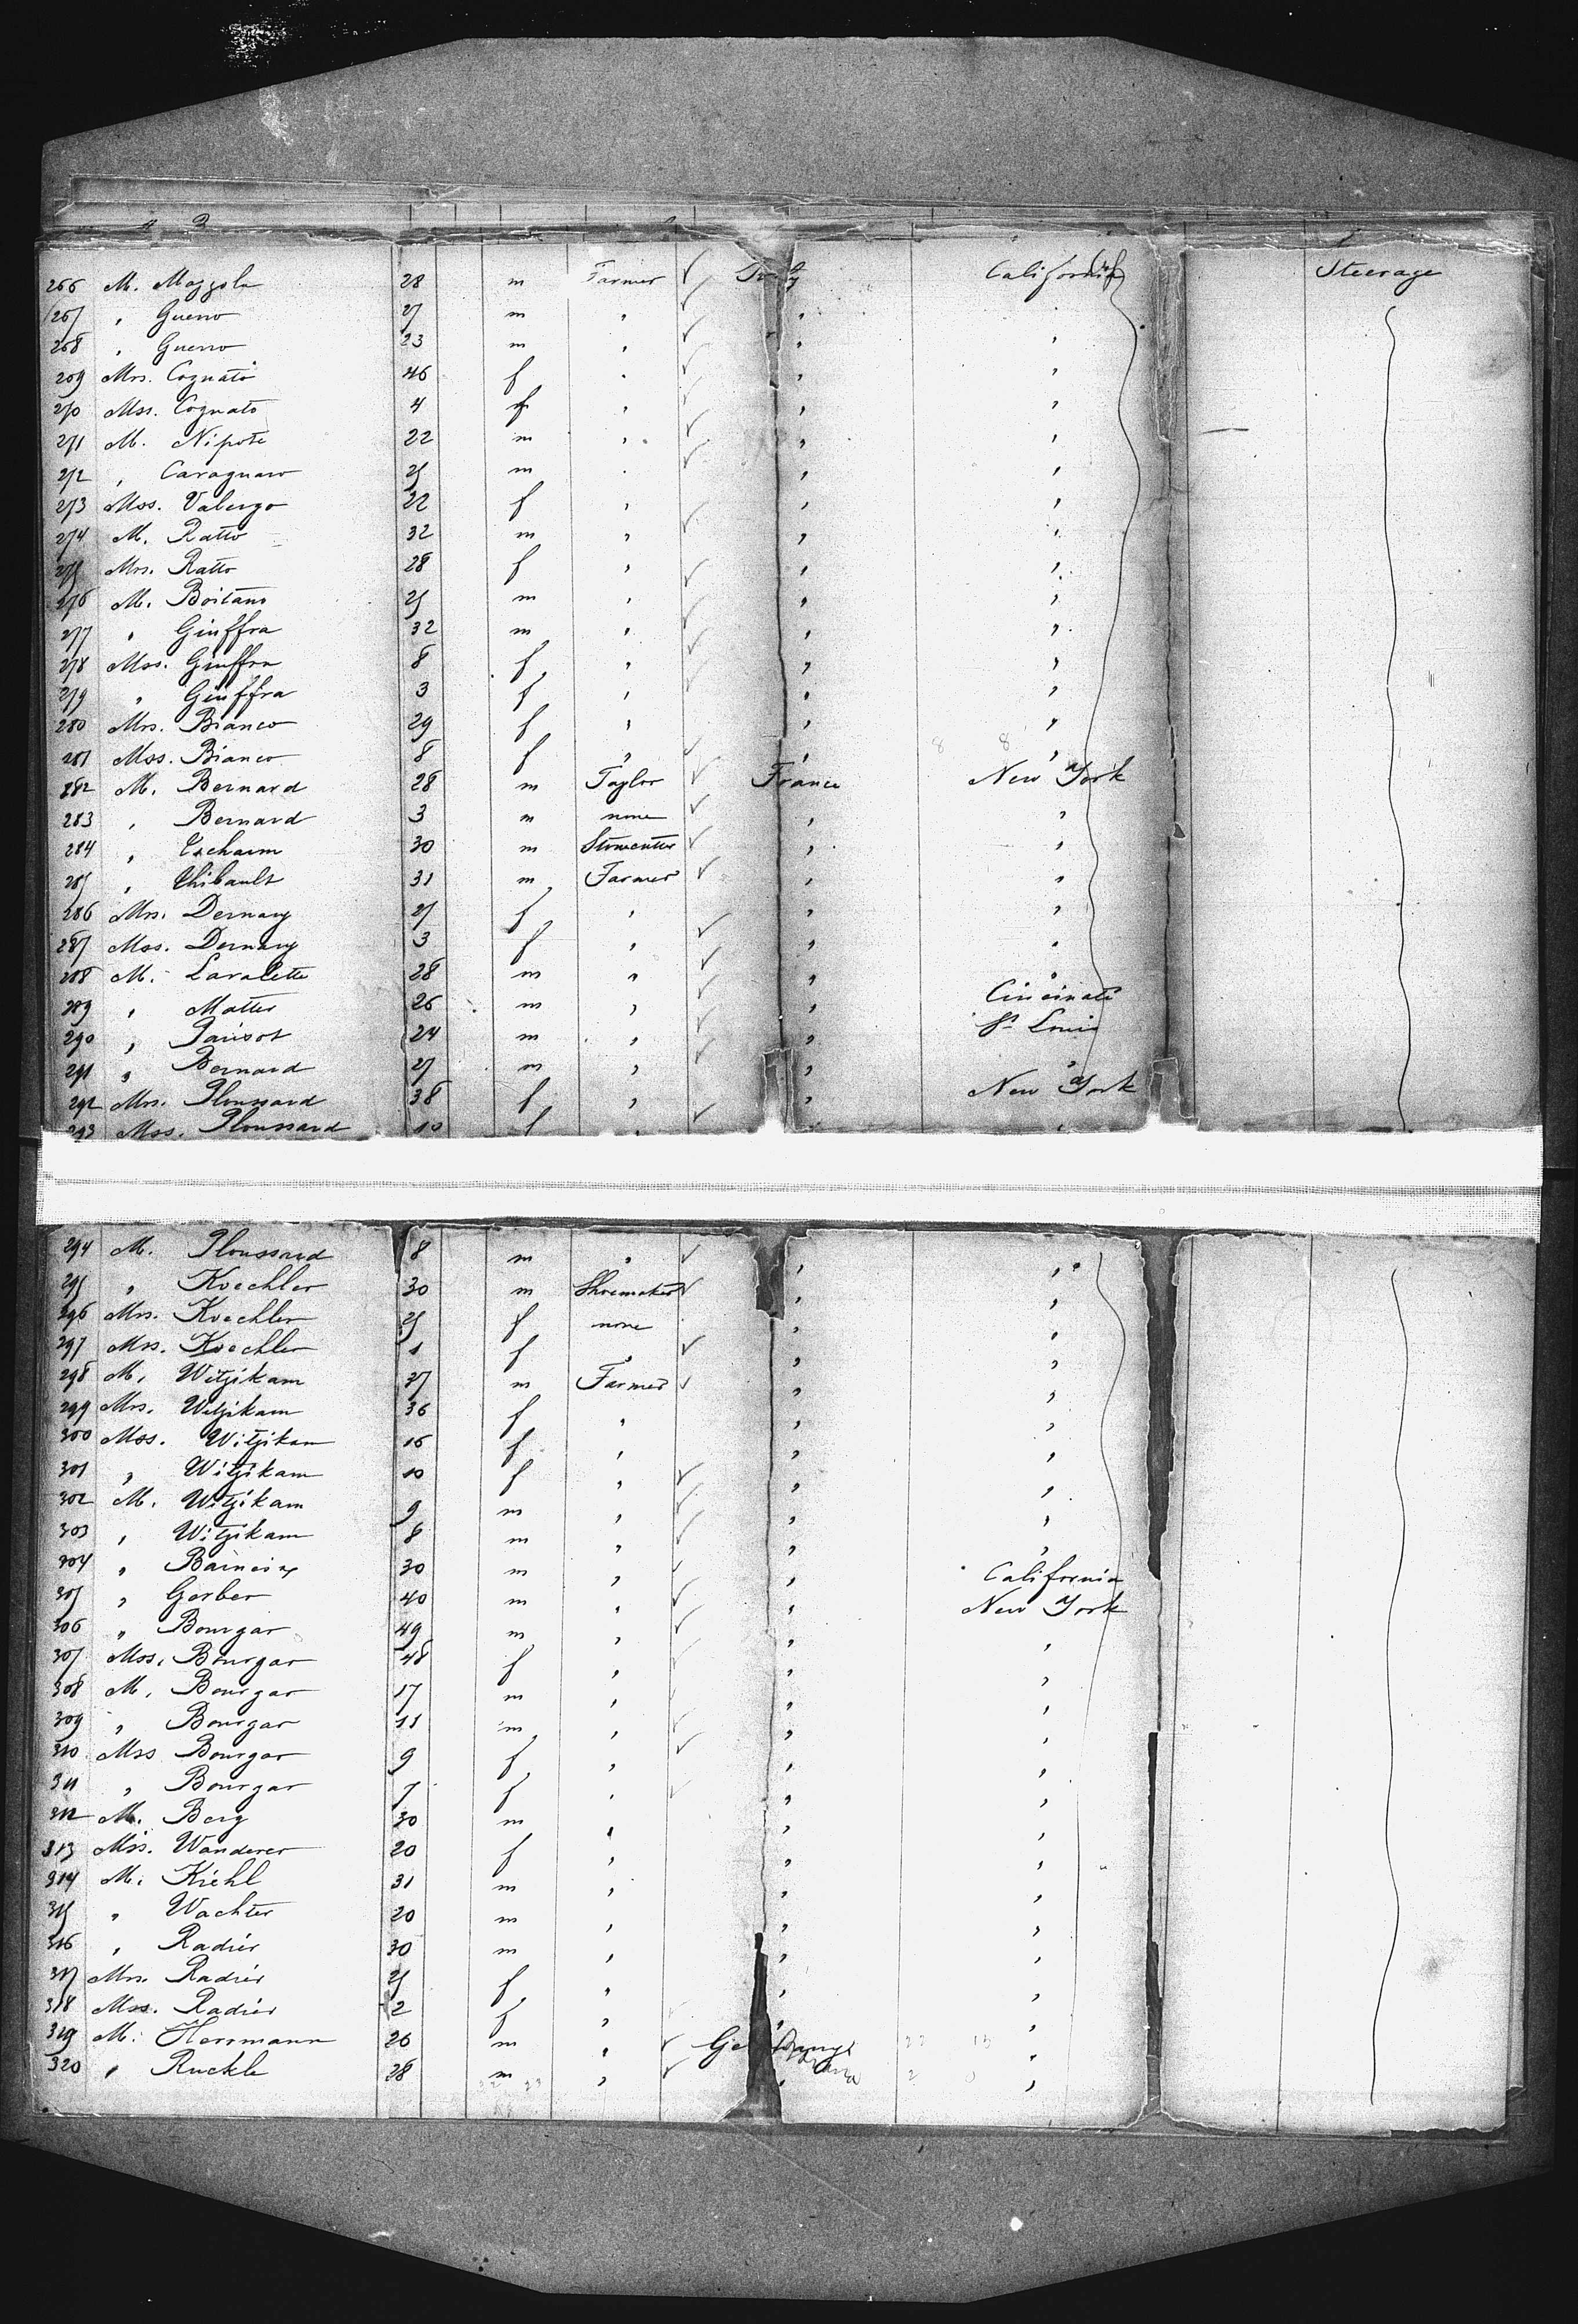 266 M. Mazzola 28 m Farmer California Steerage
267 , Guerro 27 m , , ,
268 , Guerro 23 m , , ,
269 Mrs. Cognato 46 f , , ,
270 Mss. Cognato 4 f , , ,
271 M. Nipote 22 m , , ,
272 , Caragnaro 25 m , , ,
273 Mss. Valergo 22 f , , ,
274 M. Ratto 32 m , , ,
275 Mrs. Ratto 28 f , , ,
276 M. Boitano 25 m , , ,
277 , Giuffra 32 m , , ,
278 Mss. Giuffra 8 f , , ,
279 , Giuffra 3 f , , ,
280 Mrs. Bianco 29 f , , ,
281 Mss. Bianco 8 f , , ,
282 M. Bernard 28 m Taylor France New York
283 , Bernard 3 m none , ,
284 , 30 m Stonecutter , ,
285 , Thibault 31 m Farmer , ,
286 Mrs. Dernany 27 f , , ,
287 Mss. Dernany 3 f , , ,
288 M. Lavalette 28 m , , ,
289 , Matter 26 m , , Cincinati
290 , Parisot 24 m , , St. Louis
291 , Bernard 27 m , , ,
292 Mrs. Ploussard 38 f , , New York
293 Mss. Ploussard 10 f , ,
294 M. Ploussard 8 m , , ,
295 , Koechler 30 m Shoemaker , ,
296 Mrs. Koechler 25 f none , ,
297 Mrs. Koechler 1 f , , ,
298 M. Witzikam 37 m Farmer , ,
299 Mrs. Witzikam 36 f , , ,
300 Mss. Witzikam 16 f , , ,
301 , Witzikam 10 f , , ,
302 M. Witzikam 9 m , , ,
303 , Witzikam 8 m , , ,
304 , 30 m , , California
305 , Gerber 40 m , , New York
306 , Bourgar 49 m , , ,
307 Mss. Bourgar 48 f , , ,
308 M. Bourgar 17 m , , ,
309 , Bourgar 11 m , , ,
310 Mss Bourgar 9 f , , ,
311 , Bourgar 7 f , , ,
312 M. Berg 30 m , , ,
313 Mss. Wanderer 20 f , , ,
314 M. Kiehl 31 m , , ,
315 , Wachter 20 m , , ,
316 , Radiér 30 m , , ,
317 Mrs. Radiér 25 f , , ,
318 Mss. Radiér 2 f , , ,
319 M. Herrmann 26 m , ,
320 , Ruckle 28 m , , ,